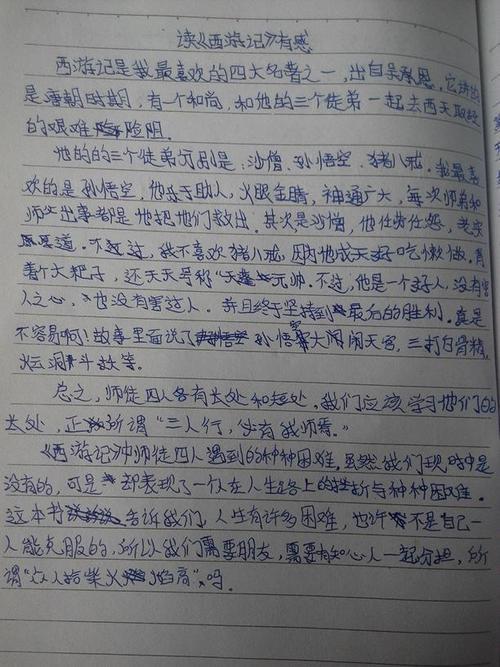 读《西游记》有感
西游记是我最喜欢的四大名著之一，出自吴承恩，它讲的
是唐朝时期，有一个和尚，和他的三个徒弟一起去西天取经
的艰难险阻。
他的的三个徒弟分别是：沙僧、孙悟空、猪八戒。我最喜
欢的是孙悟空，他乐于助人，火眼金睛，神通广大，每次师弟和
师父出事都是他把他们救出。其次是沙僧，他任劳任怨，老实
厚道。不过，我不喜欢猪八戒，因为他成天好吃懒做，
着个大耙子，还天天号称"天蓬元帅。不过，他是一个好人，没有害
人之心，也没有害过人。并且终于坚持到最后的胜利。真是
不容易啊！故事里面说了孙悟空大闹闹天宫，三打白骨精，
火云洞斗放等。
总之，师徒四人各有长处和短处，我们应该学习他们的
长处，正所谓"三人行，必有我师焉。"
《西游记》中师徒四人遇到的种种困难，虽然我们现时中是
没有的，可是却表现了一个人在人生路上的挫折与种种困难。
这本书告诉我们，人生有许多困难，也许不是自己一
人能克服的，所以我们需要朋友，需要有知心人一起分担，所
谓"众人拾柴火焰高"吗。